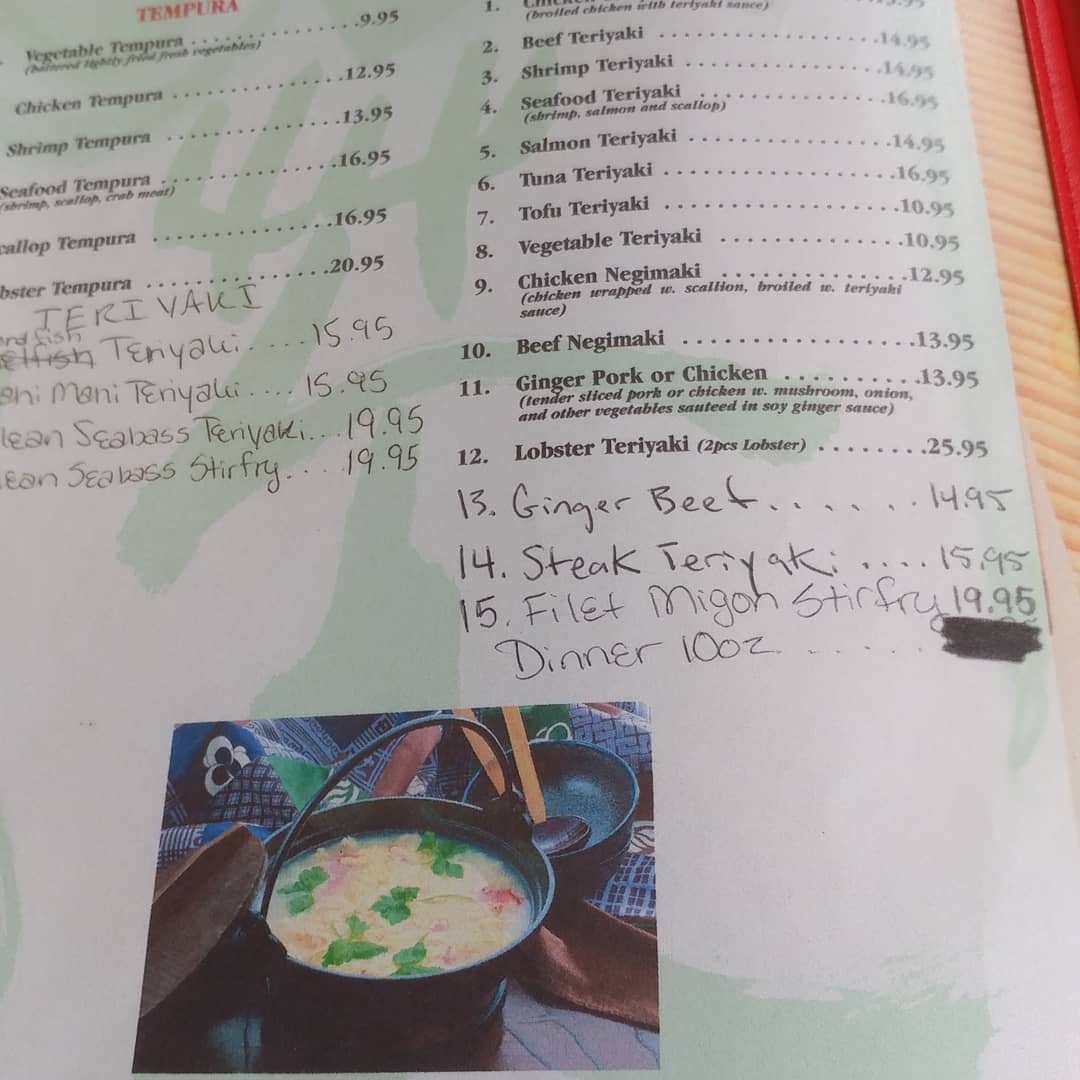 TEMPURA
Vegetable Tempura . . . . . . . . . . . . . . .9.95
(battered lightly fried fresh vegetables)
Chicken Tempura . . . . . . . . . . . . . . . .12.95
Shrimp Tempura . . . . . . . . . . . . . . . .13.95
Seafood Tempura . . . . . . . . . . . . . . . .16.95
(shrimp, scallop, crab meat)
callop Tempura . . . . . . . . . . . . . . . .16.95
bster Tempura . . . . . . . . . . . . . . . .20.95
TERIYAKI
Teriyaki. . . . .15.95
ahi Mani Teriyaki . . . . 15.95
lean Seabass Teriyaki. . . 19.95
lean Seabass Stirfry. . . . 19.95
1.
(broiled chicken with teriyaki sauce)
2. Beef Teriyaki . . . . . . . . . . . . . . . . .14.95
3. Shrimp Teriyaki . . . . . . . . . . . . . . .14.95
4. Seafood Teriyaki . . . . . . . . . . . . . .16.95
(shrimp, salmon and scallop)
5. Salmon Teriyaki . . . . . . . . . . . . . . .14.95
6. Tuna Teriyaki . . . . . . . . . . . . . . . . .16.95
7. Tofu Teriyaki . . . . . . . . . . . . . . . . .10.95
8. Vegetable Teriyaki . . . . . . . . . . . . .10.95
9. Chicken Negimaki . . . . . . . . . . . . .12.95
(chicken wrapped w. scallion, broiled w. teriyaki
sauce)
10. Beef Negimaki . . . . . . . . . . . . . . . .13.95
11. Ginger Pork or Chicken . . . . . . . . .13.95
(tender sliced pork or chicken w. mushroom, onion,
and other vegetables sauteed in soy ginger sauce)
12. Lobster Teriyaki (2pcs Lobster) . . . . . . . .25.95
13. Ginger Beef. . . . . . . 14.95
14. Steak Teriyaki . . . . 15.95
15. Filet Migon Stirfry 19.95
Dinner 10oz. . . . . .